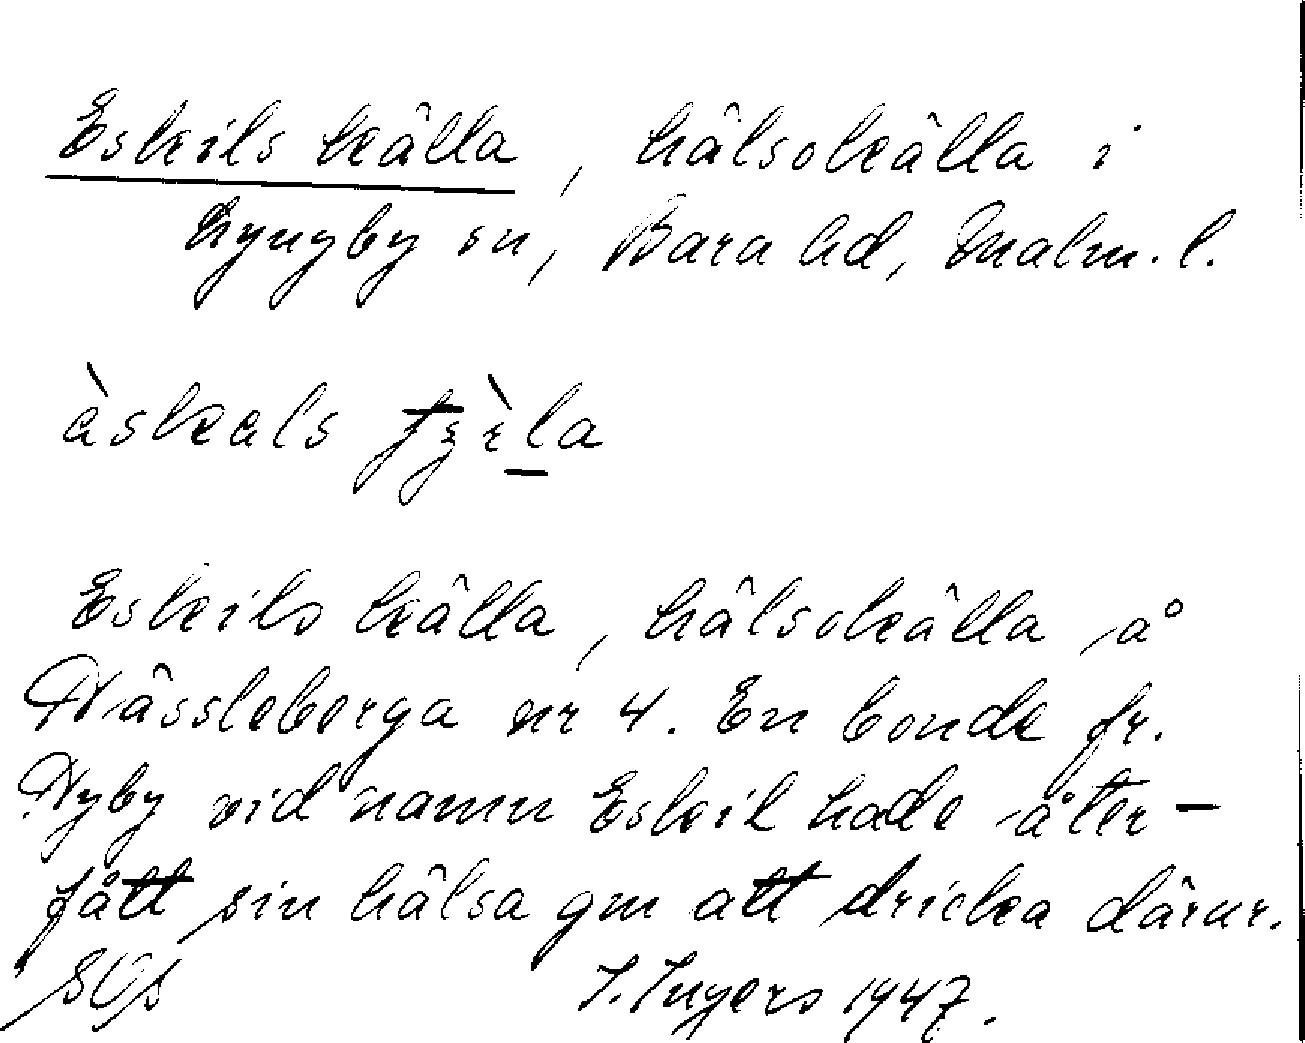 Eskils källa, hälsokälla i
Lyngby sn, Bara hd, Malm. l.
àskals
Eskils källa, hälsokälla å
Nässleberga nr 4. En bonde fr.
Nyby vid namn Eskil hade åter-
fått sin hälsa gm att dricka därur.
I. Ingers 1947.